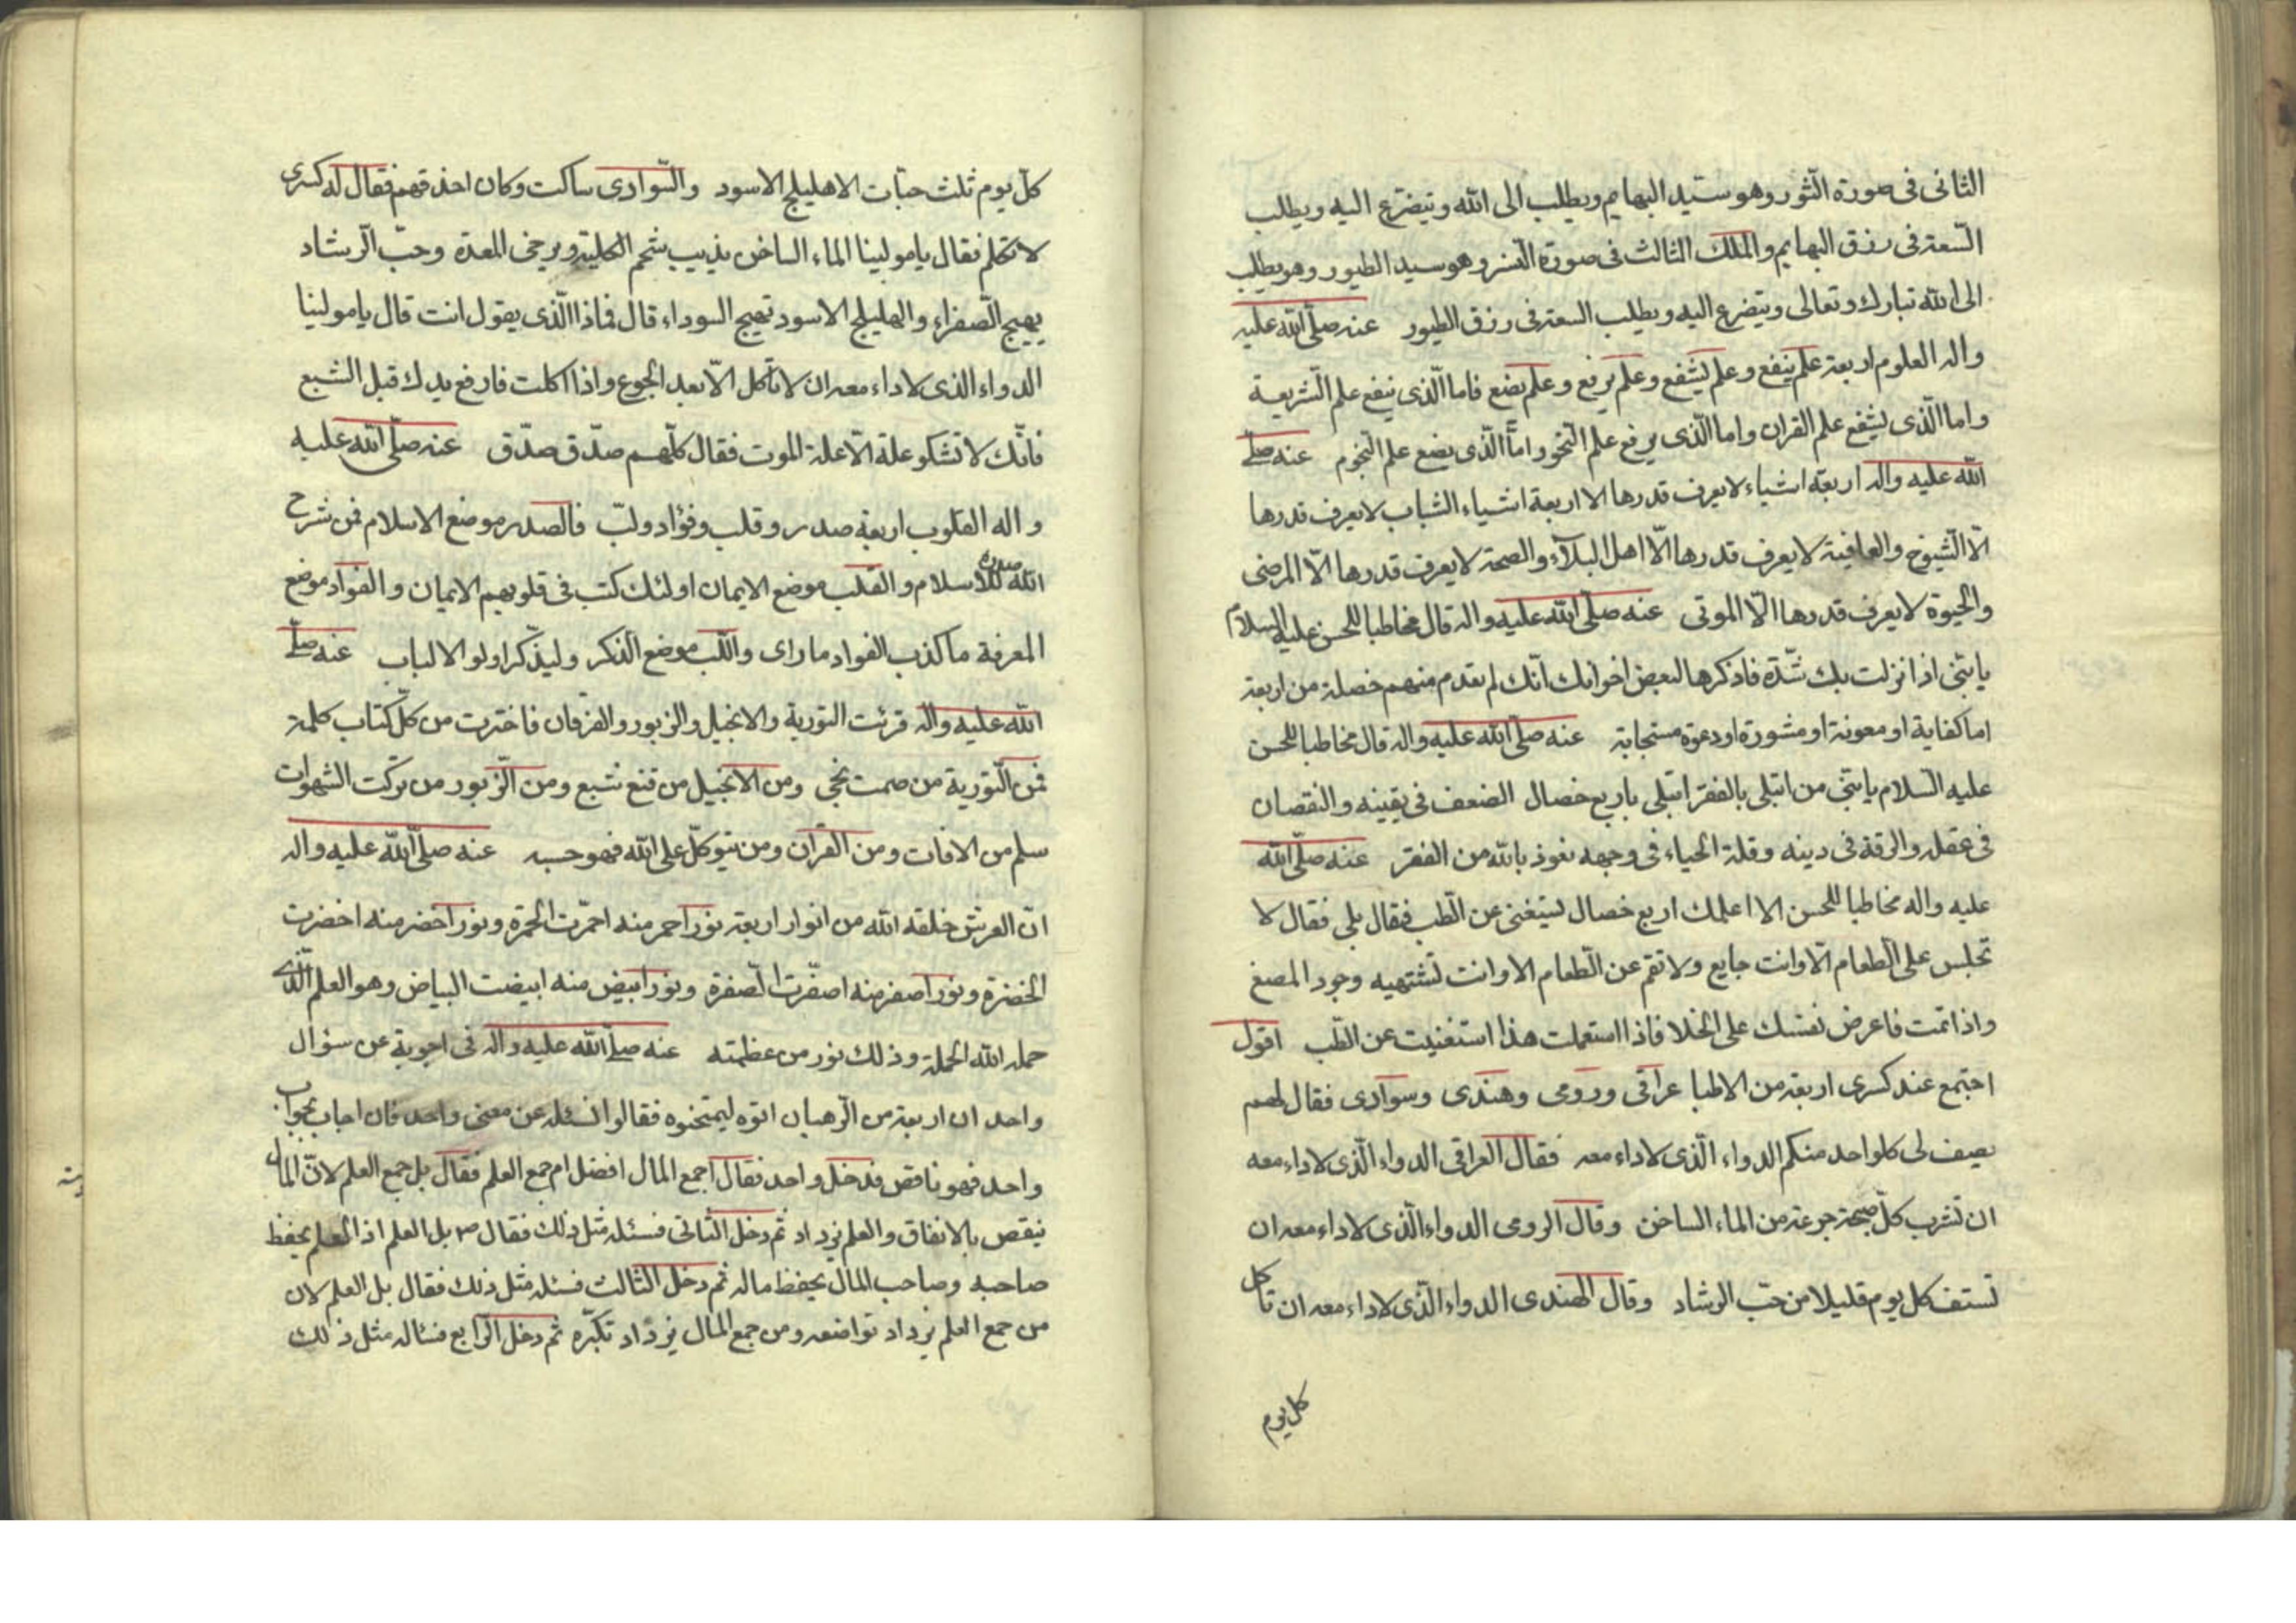 الثانى فى صورة الثور وهو سيد البهايم ويطلب الى الله ويتضرع اليه ويطلب
السعة فى رزق البهايم والملك الثالث فى صورة النسر وهو سيد الطيور وهو يطلب
الى الله تبارك وتعالى ويتضرع اليه ويطلب السعة فى رزق الطيور عنه صلى الله عليه
واله العلوم اربعة علم ينفع وعلم يشفع وعلم يرفع وعلم يضع فاما الّذى ينفع علم الشريعة
واما الّذى يشفع علم القران واما الّذى يرفع علم النحو واما الّذى يضع علم النجوم عنه صلى
الله عليه واله اربعة اشياء لا يعرف قدرها الا اربعة اشياء الشباب لا يعرف قدرها
الّا الشيوخ والعافية لا يعرف قدرها الّا اهل البلاء والصحة لا يعرف قدرها الّا المرضى
والحيوة لا يعرف قدرها الّا الموتى عنه صلى الله عليه واله قال مخاطبا للحسن عليه السلام
يا بنى اذا نزلت بك شدّة فاذكرها لبعض اخوانك انّك لم تعدم منهم خصلة من اربعة
اما كفاية او معونة او مشورة او دعوة مستجابة عنه صلى الله عليه واله قال مخاطبا للحسن
عليه السلام يا بنى من ابتلى بالفقر ابتلى باربع خصال الضعف فى يقينه والنقصان
فى عقله والرقة فى دينه وقلة الحياء فى وجهه نعوذ بالله من الفقر عنه صلّى الله
عليه واله مخاطبا للحسن الا اعلمك اربع خصال تستغنى عن الطب فقال بلى فقال لا
تجلس على الطعام الّا وانت جايع ولا تقم عن الطعام الا وانت تشتهيه وجود المضغ
واذا نمت فاعرض نفسك على الخلا فاذا استعملت هذا استغنيت عن الطب اقول
اجتمع عند كسرى اربعة من الاطبا عراقى ورومى وهندى وسوادى فقال لهم
يصف لى كلواحد منكم الدواء الّذى لا داء معه فقال العراقى الدواء الّذى لا داء معه
ان تشرب كلّ صبحة جرعة من الماء الساخن وقال الرومى الدواء الّذى لا داء معه ان
تستف كل يوم قليلا من حبّ الرشاد وقال الهندى الدواء الّذى لا داء معه ان تاكل
كل يوم
كلّ يوم ثلث حبّات الاهليلج الاسود والسّوادى ساكت وكان احذقهم فقال له كسرى
لا تكلم فقال يا مولينا الماء الساخن يذيب شحم الكلية ويرخى المعدة وحبّ الرشاد
يهيج الصفراء والهليلج الاسود تهيج السوداء قال فماذا الّذى يقول انت قال يا مولينا
الدواء الذى لا داء معه ان لا تأكل الّا بعد الجوع واذا اكلت فارفع يدك قبل الشبع
فانّك لا تشكو علة الّا علة الموت فقال كلّهم صدّق صدّق عنه صلّى الله عليه
واله القلوب اربعة صدر وقلب وفؤاد ولبّ فالصدر موضع الاسلام فمن شرح
الله صدره للاسلام والقلب موضع الايمان اولئك كتب فى قلوبهم الايمان والفواد موضع
المعرفة ما كذب الفواد ما راى واللب موضع الذكر وليذّكر اولو الالباب عنه صلى
الله عليه واله قرئت التورية والانجيل والزبور والفرقان فاخترت من كلّ كتاب كلمة
فمن التورية من صمت نجى ومن الانجيل من قنع شبع ومن الزبور من تركت الشهوات
سلم من الافات ومن القران ومن يتوكّل على الله فهو حسبه عنه صلّى الله عليه واله
انّ العرش خلقه الله من انوار اربعة نور احمر منه احمرّت الحمرة ونور اخضر منه اخضرت
الخضرة ونور اصفر منه اصفّرت الصفرة ونور ابيض منه ابيضت البياض وهو العلم الّذى
حمله الله الحملة وذلك نور من عظمته عنه صلى الله عليه واله فى اجوبة عن سؤال
واحد ان اربعة من الرهبان اتوه ليمتحنوه فقالوا نسئله عن معنى واحد فان اجاب بجواب
واحد فهو ناقص فدخل واحد فقال اجمع المال افضل ام جمع العلم فقال بل جمع العلم لانّ المال
ينقص بالانفاق والعلم يزداد ثم دخل الثانى فسئله مثل ذلك فقال ص بل العلم اذ العلم يحفظ
صاحبه وصاحب المال يحفظ ماله ثم دخل الثالث فسئله مثل ذلك فقال بل العلم لان
من جمع العلم يزداد تواضعه ومن جمع المال يزداد تكبّره ثم دخل الرابع فساله مثل ذلك